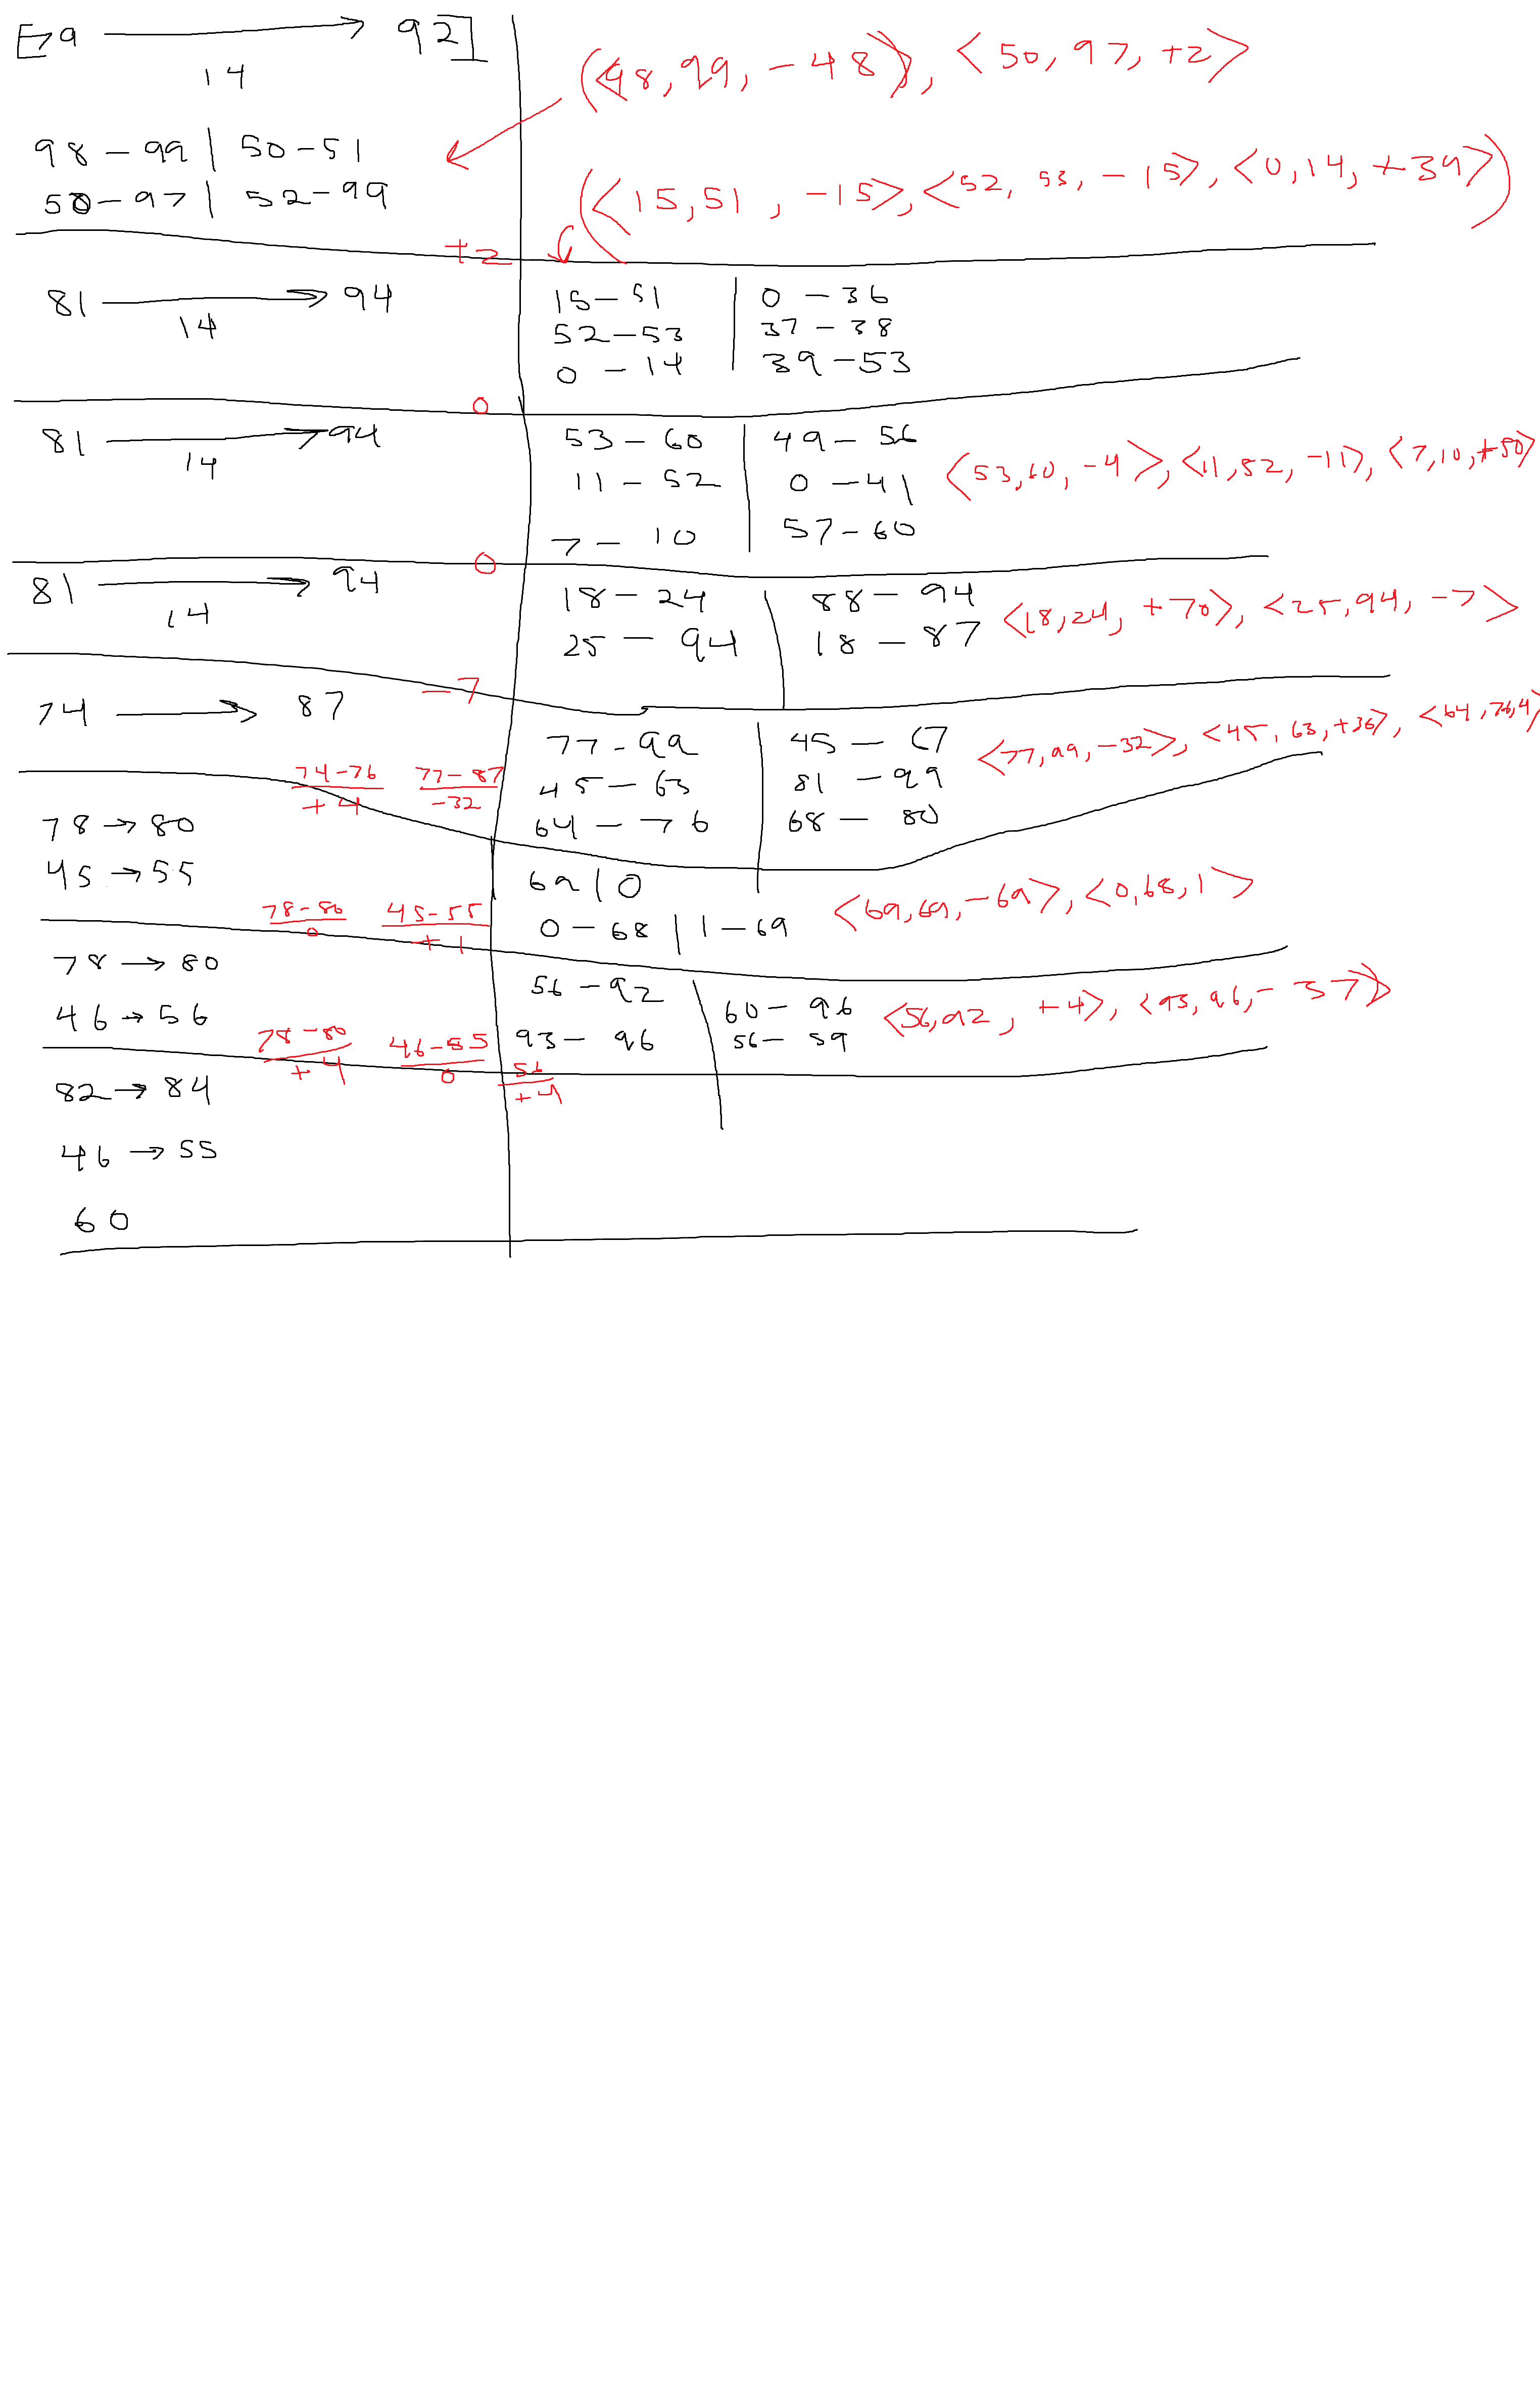 [79 → 92]
14
(<98,99,-48>), <50,97,+2>
98-99 | 50-51
50-97 | 52-99
(<15,51,-15>,<52,53,-15>,<0,14,+39>)
+2
81 → 94
14
15-51 | 0-36
52-53 | 37-38
0-14 | 39-53
0
81 → 94
14
53-60 | 49-56
11-52 | 0-41
7-10 | 57-60
<53,60,-4>,<11,52,-11>,<7,10,+50>
0
81 → 94
14
18-24 | 88-94
25-94 | 18-87
<18,24,+70>,<25,94,-7>
-7
74 → 87
77-99 | 45-67
45-63 | 81-99
64-76 | 68-80
<77,99,-32>,<45,63,+36>,<64,76,4>
74-76 77-87
+4 -32
78→80
45→55
69 | 0
0-68 | 1-69
<69,69,-69>,<0,68,1>
78-80 45-55
0 +1
78→80
46→56
56-92 | 60-96
93-96 | 56-59
<56,92,+4>,<93,96,-37>>
78-80 46-55 56
+4 0 +4
82→84
46→55
60